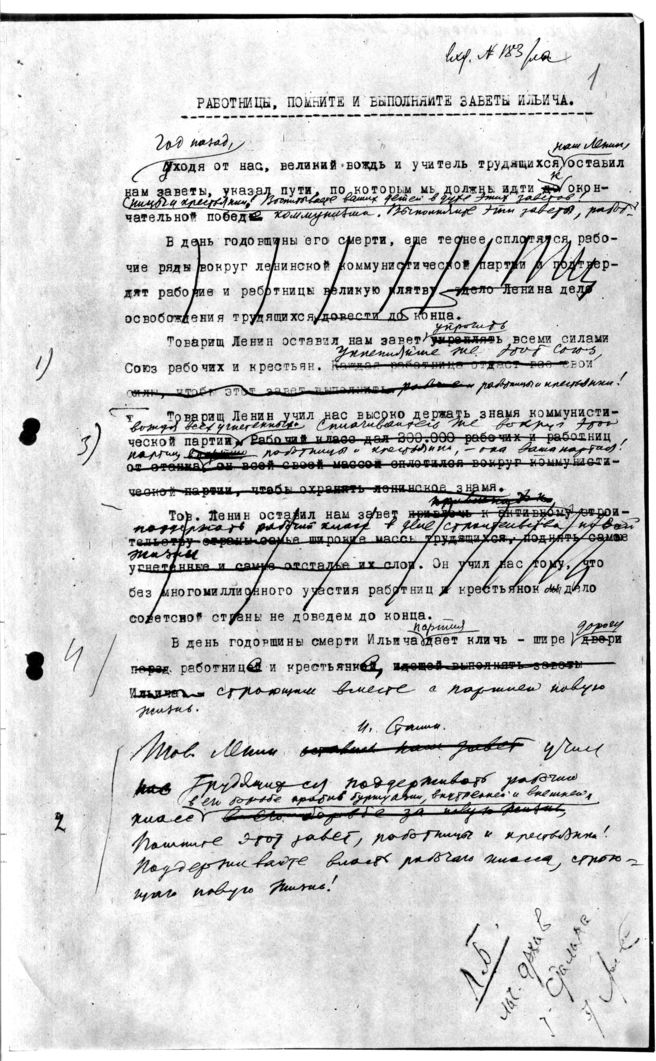 вхд. № 183/
1
РАБОТНИЦЫ, ПОМНИТЕ И ВЫПОЛНЯЙТЕ ЗАВЕТЫ ИЛЬИЧА.
Год назад,
наш Ленин
Уходя от нас, великий вождь и учитель трудящихся оставил
к
нам заветы, указал пути, по которым мы должны идти до окон-
ницы и крестьянки! Воспитывайте ваших детей в духе этих заветов!
чательной победе коммунизма. Выполняйте эти заветы, работ-
В день годовщины его смерти, еще теснее сплотятся рабо-
чие ряды вокруг ленинской коммунистической партии и подтвер-
дят рабочие и работницы великую клятву - дело Ленина дело
освобождения трудящихся довести до конца.
упрочить
Товарищ Ленин оставил нам завет укреплять всеми силами
Укрепляйте же этот союз,
1)
Союз рабочих и крестьян. Каждая работница отдаст все свои
силы, чтобы этот завет выполнить. работницы и крестьянки!
Товарищ Ленин учил нас высоко держать знамя коммунисти-
вождя всех угнетенных. Сплачивайтесь же вокруг этой
3)
ческой партии. Рабочий класс дал 200.000 рабочих и работниц
партии, работницы и крестьянки, - она ваша партия!
от станка, он всей своей массой сплотился вокруг коммунисти-
ческой партии, чтобы охранять ленинское знамя.
Тов. Ленин оставил нам завет привлечь к активному строи-
поддержать рабочий класс в деле строительства новой
тельству страны самые широкие массы трудящихся, поднять самые
жизни
угнетенные и самые отсталые их слои. Он учил нас тому, что
без многомиллионного участия работниц и крестьянок мы дело
советской страны не доведем до конца.
партия
дорогу
В день годовщины смерти Ильича дает клич - шире двери
4)
перед работницей и крестьянкой, идущей выполнять заветы
Ильича. строющим вместе с партией новую
жизнь.
И. Сталин.
Тов. Ленин оставил нам завет учил
нас Трудящихся поддерживать рабочий
в его борьбе против буржуазии, внутренней и внешней.
2
класс в его борьбе за новую жизнь.
Помните этот завет, работницы и крестьянки!
Поддерживайте власть рабочего класса, строю-
щего новую жизнь!
Л.Б.
архив
т. Сталина